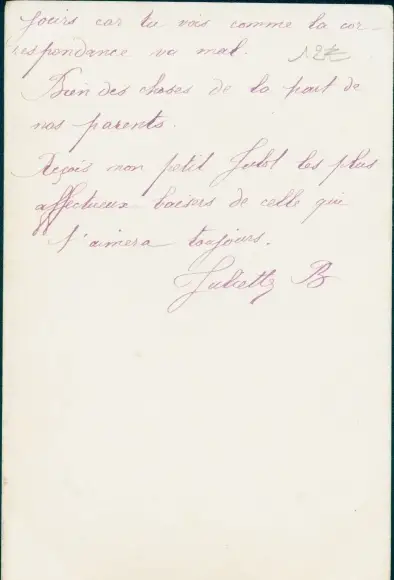 jours car tu vois comme la cor-
respondance va mal.
Bien des choses de la part de
nos parents.
Reçois mon petit Julot les plus
affectueux baisers de celle qui
t'aimera toujours.
Juliette B